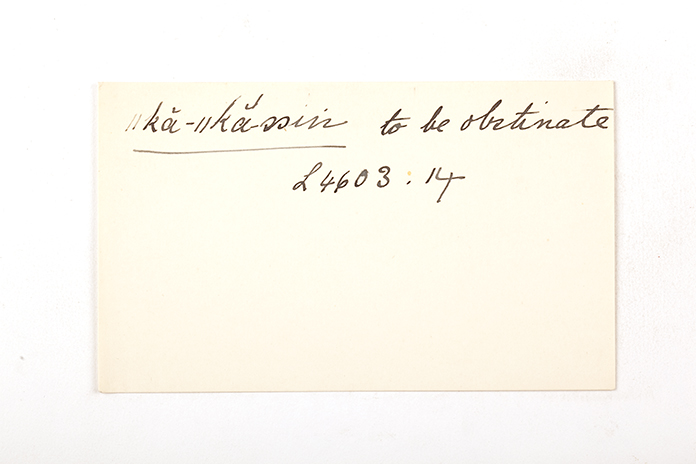 ǁkă-ǁkắ-ssin to be obstinate
L 4603. 14